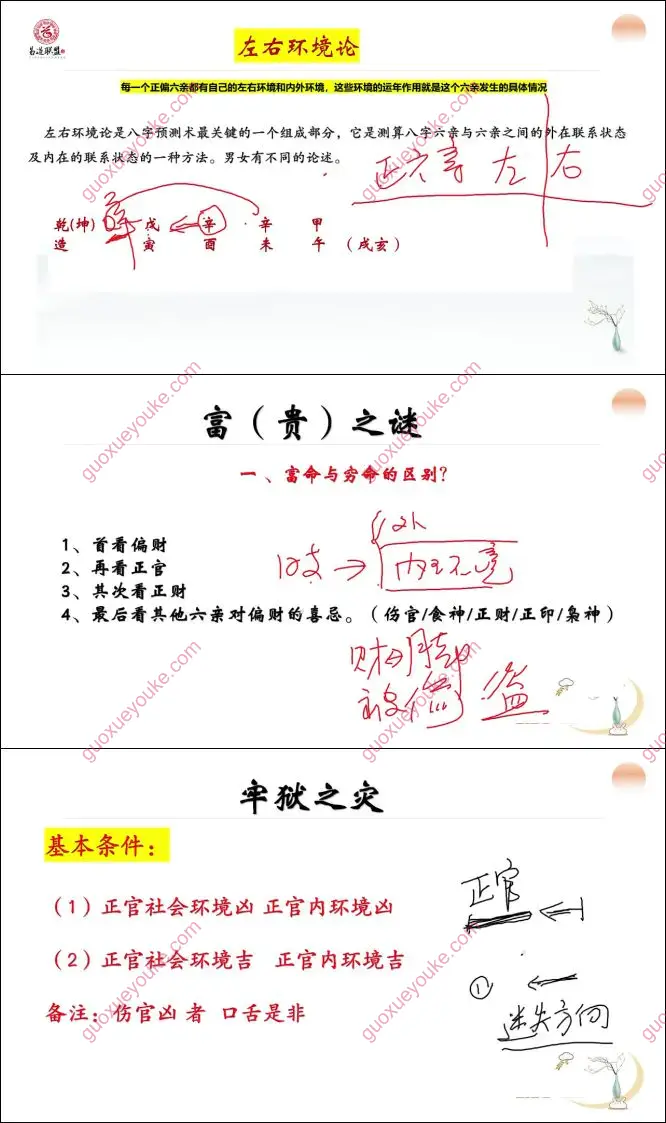 易道联盟
左右环境论
每一个正偏六亲都有自己的左右环境和内外环境，这些环境的运年作用就是这个六亲发生的具体情况
左右环境论是八字预测术最关键的一个组成部分，它是测算八字六亲与六亲之间的外在联系状态
及内在的联系状态的一种方法。男女有不同的论述。
正六亲 左 右
乾(坤) 戊 辛 辛 甲
造 寅 酉 未 午 （戌亥）
guoxueyouke.com
富（贵）之谜
一、富命与穷命的区别？
1、首看偏财
2、再看正官
3、其次看正财
4、最后看其他六亲对偏财的喜忌。（伤官/食神/正财/正印/枭神）
被偷 盗
guoxueyouke.com
牢狱之灾
基本条件：
（1）正官社会环境凶 正官内环境凶
（2）正官社会环境吉 正官内环境吉
备注：伤官凶者 口舌是非
正官
①
迷失方向
guoxueyouke.com